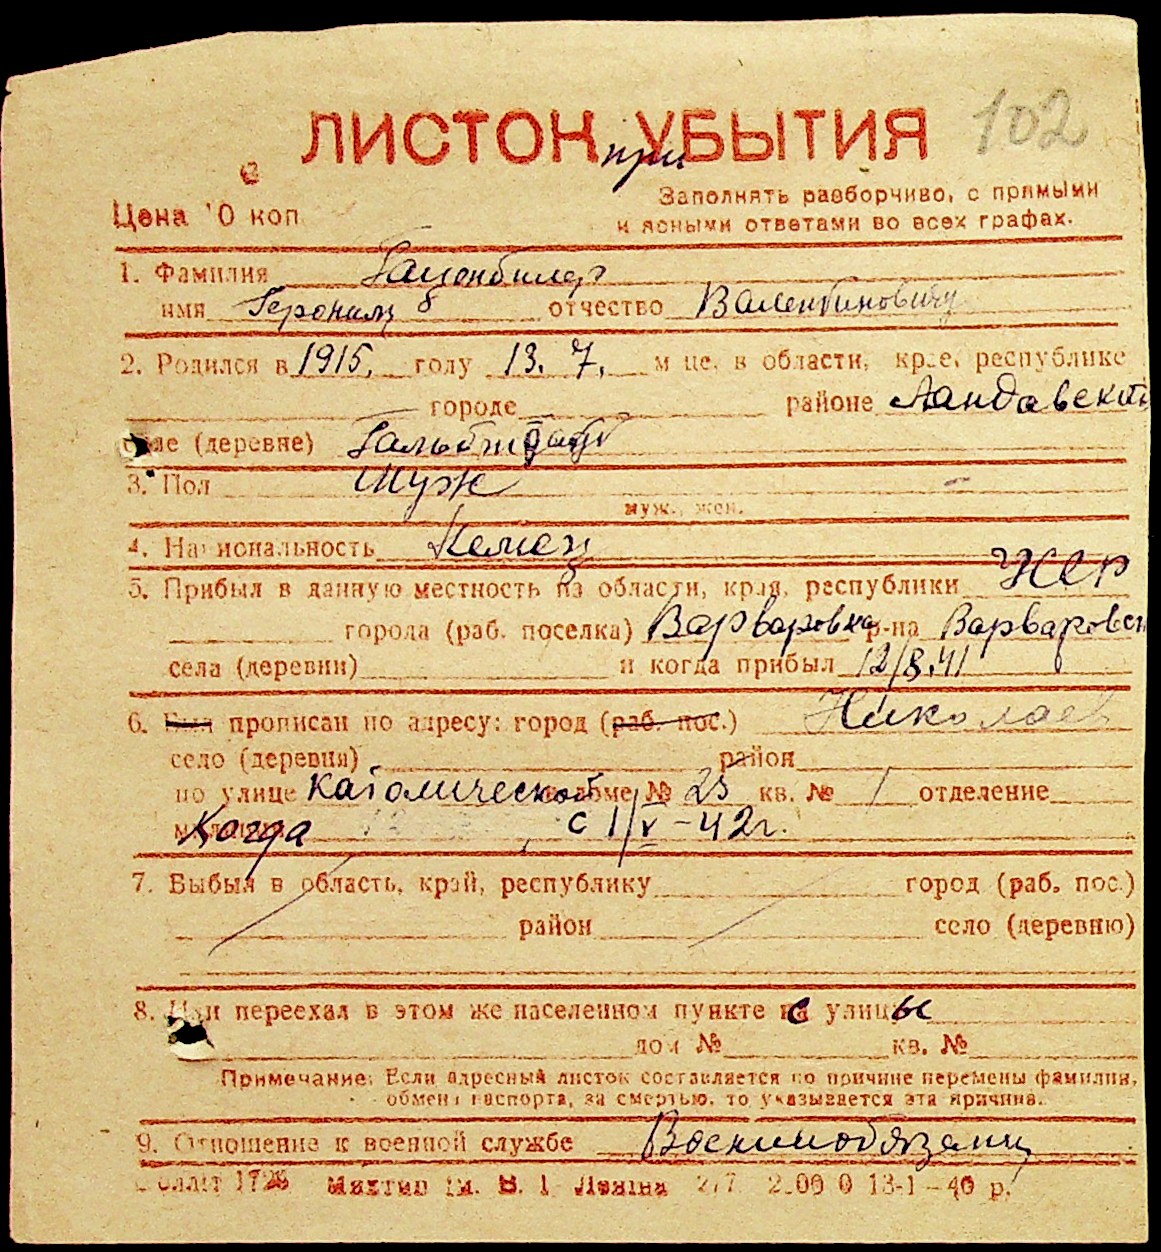 102
ЛИСТОК УБЫТИЯ
при
Цена 10 коп
Заполнять разборчиво, с прямыми
и ясными ответами во всех графах.
1. Фамилия
имя отчество Валентинович
2. Родился в 1915. году 13. 7. м це, в области, крае, республике
городе районе Ландавский
селе (деревне)
3. Пол Муж
муж., жен.
4. Национальность Немец
5. Прибыл в данную местность из области, края, республики
города (раб. поселка) Варваровка р-на Варваровск
села (деревни) и когда прибыл 12/8.41
6. Был прописан по адресу: город (раб. пос.) Николаев
село (деревня) район
по улице Католической в доме № 23 кв. № 1 отделение
Когда с 1/V-42г.
7. Выбыл в область, край, республику город (раб. пос.)
район село (деревню)
8. Или переехал в этом же населенном пункте с улицы
дом № кв. №
Примечание: Если адресный листок составляется по причине перемены фамилии,
обмена паспорта, за смертью, то указывается эта причина.
9. Отношение к военной службе Военнообязанный